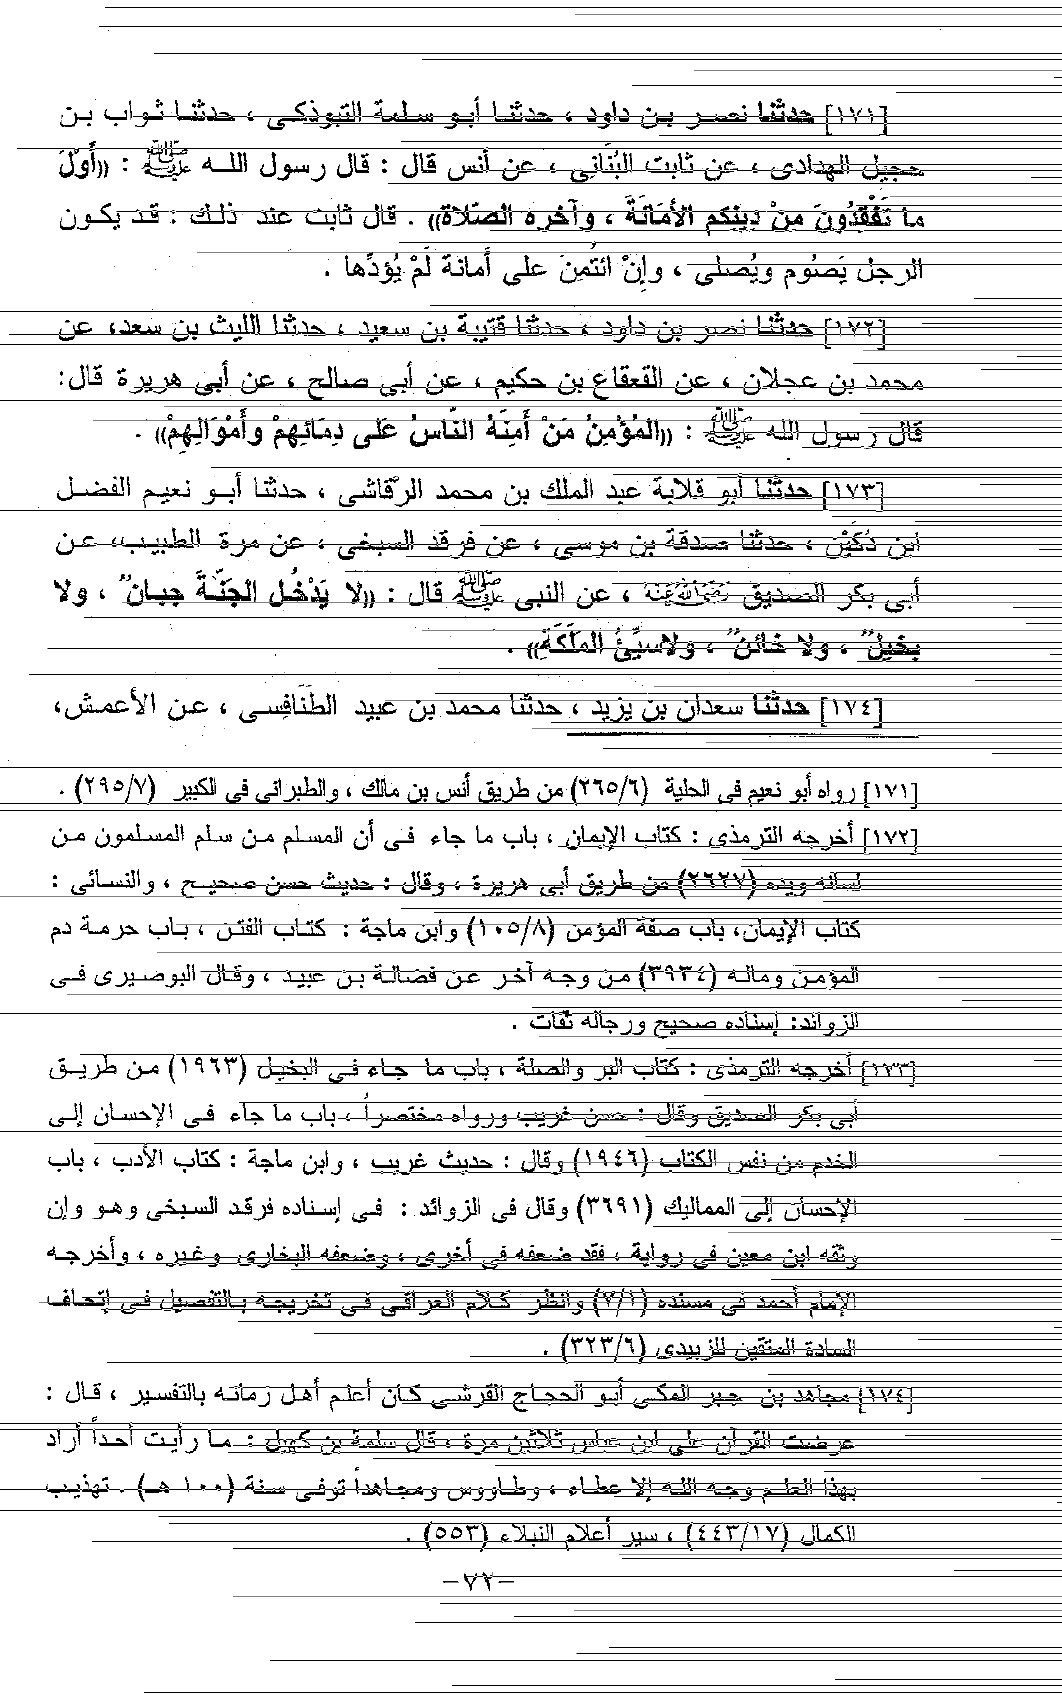 [١٧١] حدثنا نصر بن داود ، حدثنا أبو سلمة التبوذكى ، حدثنا ثواب بن
حجيل الهدادى ، عن ثابت البُنَانِى ، عن أنس قال : قال رسول الله ﷺ : «أَوَّلَ
ما تَفْقِدُونَ مِنْ دِينِكم الأَمَانَةَ ، وآخره الصَّلاَة» . قال ثابت عند ذلك : قد يكون
الرجل يَصُوم ويُصلى ، وإنْ ائتُمنَ على أَمانة لَمْ يُؤدِّها .
[١٧٢] حدثنا نصر بن داود ، حدثنا قتيبة بن سعيد ، حدثنا الليث بن سعد، عن
محمد بن عجلان ، عن القعقاع بن حكيم ، عن أبى صالح ، عن أبى هريرة قال:
قال رسول الله ﷺ : «المُؤْمِنُ مَنْ أَمِنَهُ النَّاسُ عَلى دِمَائِهِمْ وأَمْوَالِهِمْ» .
[١٧٣] حدثنا أبو قلابة عبد الملك بن محمد الرقاشى ، حدثنا أبو نعيم الفضل
ابن دُكَيْن ، حدثنا صدقة بن موسى ، عن فرقد السبخى ، عن مرة الطبيب، عن
أبى بكر الصديق رَضِيَ اللهُ عَنْهُ ، عن النبى ﷺ قال : «لا يَدْخُل الجَنَّةَ جبان ، ولا
بخيلٌ ، ولا خائنٌ ، ولاسيِّئُ المَلَكَةِ» .
[١٧٤] حدثنا سعدان بن يزيد ، حدثنا محمد بن عبيد الطَّنَافِسى ، عن الأعمش،
[١٧١] رواه أبو نعيم فى الحلية (٢٦٥/٦) من طريق أنس بن مالك ، والطبرانى فى الكبير (٢٩٥/٧) .
[١٧٢] أخرجه الترمذى : كتاب الإيمان ، باب ما جاء فى أن المسلم من سلم المسلمون من
لسانه ويده (٢٦٢٧) من طريق أبى هريرة ، وقال : حديث حسن صحيح ، والنسائى :
كتاب الإيمان، باب صفة المؤمن (١٠٥/٨) وابن ماجة : كتاب الفتن ، باب حرمة دم
المؤمن وماله (٣٩٣٤) من وجه آخر عن فضالة بن عبيد ، وقال البوصيرى فى
الزوائد: إسناده صحيح ورجاله ثقات .
[١٧٣] أخرجه الترمذى : كتاب البر والصلة ، باب ما جاء فى البخيل (١٩٦٣) من طريق
أبى بكر الصديق وقال : حسن غريب ورواه مختصراً ، باب ما جاء فى الإحسان إلى
الخدم من نفس الكتاب (١٩٤٦) وقال : حديث غريب ، وابن ماجة : كتاب الأدب ، باب
الإحسان إلى المماليك (٣٦٩١) وقال فى الزوائد : فى إسناده فرقد السبخى وهو وإن
وثقه ابن معين فى رواية ، فقد ضعفه فى أخرى ، وضعفه البخارى وغيره ، وأخرجه
الإمام أحمد فى مسنده (٧/١) وانظر كلام العراقى فى تخريجة بالتفصيل فى إتحاف
السادة المتقين للزبيدى (٣٢٣/٦) .
[١٧٤] مجاهد بن جبر المكى أبو الحجاج القرشى كان أعلم أهل زمانه بالتفسير ، قال :
عرضت القرآن على ابن عباس ثلاثين مرة ، قال سلمة بن كهيل : ما رأيت أحداً أراد
بهذا العلم وجه الله إلا عطاء ، وطاووس ومجاهداً توفى سنة (١٠٠ هـ) . تهذيب
الكمال (٤٤٣/١٧) ، سير أعلام النبلاء (٥٥٣) .
-٧٢-